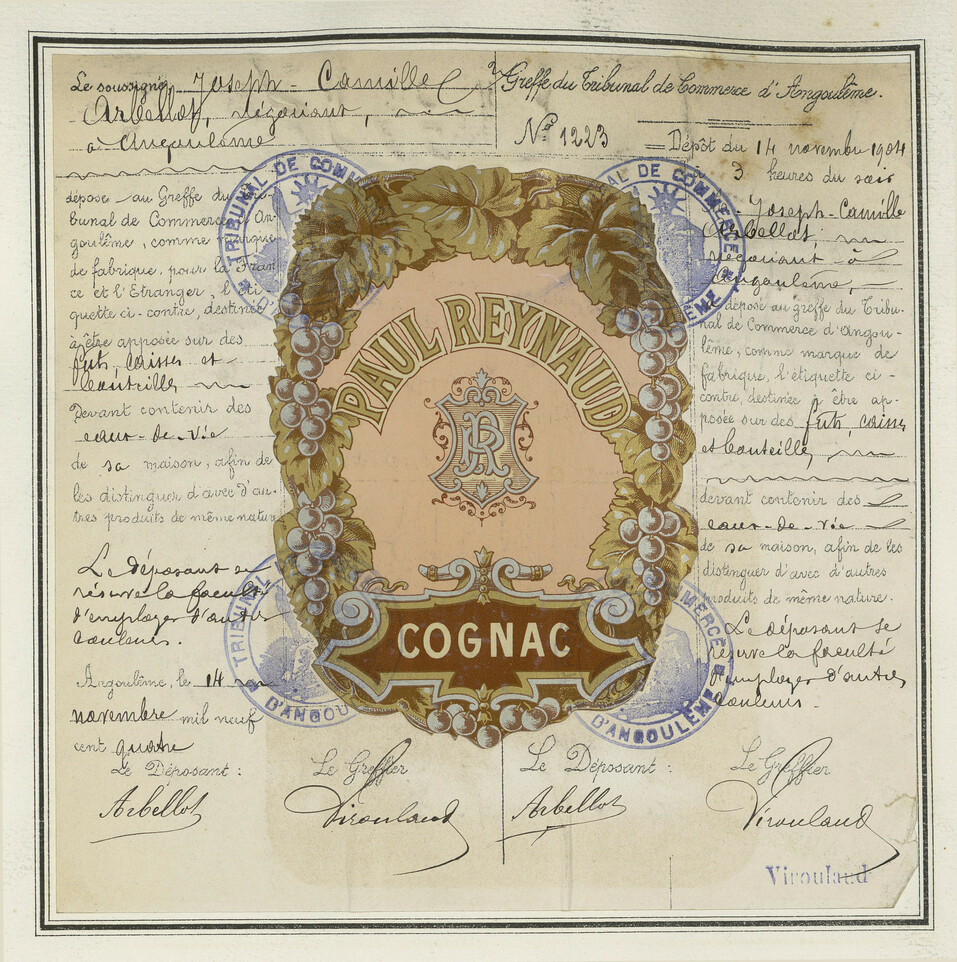 Le soussigné Joseph-Camille
Arbellot, négociant,
à Angoulême
dépose au Greffe du Tri-
bunal de Commerce d'An-
goulême, comme marque
de fabrique, pour la Fran
ce et l'Etranger, l'éti
quette ci-contre, destinée
à être apposée sur des
futs, caisses et
bouteilles
Devant contenir des
eaux-de-vie
de sa maison, afin de
les distinguer d'avec d'au-
tres produits de même nature
Le déposant se
réserve la faculté
d'employer d'autres
couleurs.
Angoulême, le 14
novembre mil neuf
cent quatre
Le Déposant :
Arbellot
Le Greffier
Viroulaud
PAUL REYNAUD
PR
COGNAC
Greffe du Tribunal de Commerce d'Angoulême.
N° 1223
Dépôt du 14 novembre 1904
3 heures du soir
Joseph-Camille
Arbellot,
négociant à
Angoulême,
dépose au greffe du Tribu-
nal de Commerce d'Angou-
lême, comme marque de
fabrique, l'étiquette ci-
contre, destinée à être ap-
posée sur des futs, caisses
et bouteilles,
devant contenir des
eaux-de-vie
de sa maison, afin de les
distinguer d'avec d'autres
produits de même nature.
Le déposant se
réserve la faculté
d'employer d'autres
couleurs.
Le Déposant :
Arbellot
Le Greffier
Viroulaud
Viroulaud
TRIBUNAL DE COMM
D'
AL DE COMMERCE
ÊME
TRIBUNAL
D'ANGOU
MERCE
D'ANGOULÊME